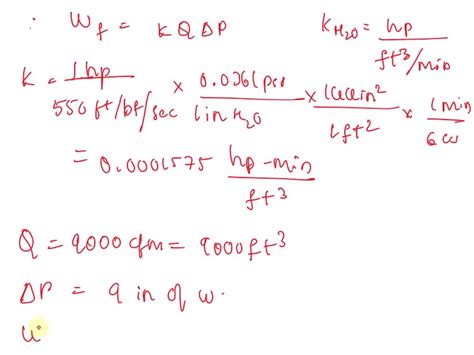 ∴ W_f = KQΔP K_H2O = hp / ft3/min
K = 1hp / 550ft/bf/sec × 0.0361psi / 1inH2O × 144in2 / 1ft2 × 1min / 60s
= 0.0001575 hp-min / ft3
Q = 9000cfm = 9000ft3
ΔP = 9 in of w.
W